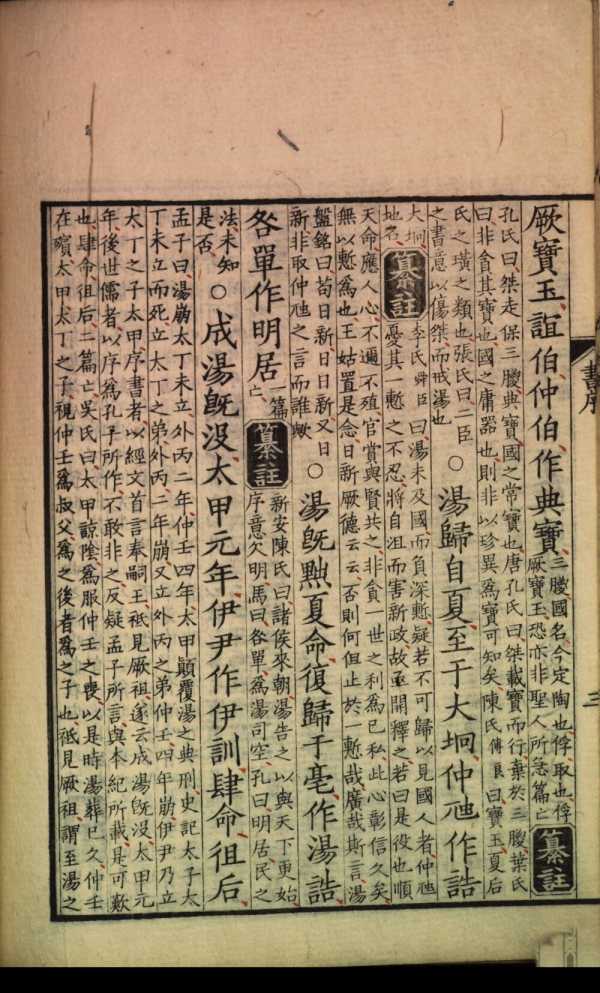 書序
三
厥寶玉誼伯仲伯作典寶
三朡國名今定陶也俘取也俘
厥寶玉恐亦非聖人所急篇亡
纂註
孔氏曰桀走保三朡典寶國之常寶也唐孔氏曰桀載寶而行棄於三朡葉氏
曰非貪其寶也國之庸器也則非以珍異爲寶可知矣陳氏傅良曰寶玉夏后
氏之璜之類也張氏曰二臣
之書意以傷桀而戒湯也
○湯歸自夏至于大坰仲虺作誥
大坰
地名
纂註
李氏舜臣曰湯未及國而負深慙疑若不可歸以見國人者仲虺
憂其一慙之不忍將自沮而害新政故亟開釋之若曰是役也順
天命應人心不邇不殖官賞與賢共之非貪一世之利爲已私此心彰信久矣
無以慙爲也王姑置是念日新厥德云云否則何但止於一慙哉廣哉斯言湯
盤銘曰苟日新日日新又日
新非取仲虺之言而誰歟
○湯旣黜夏命復歸于亳作湯誥
咎單作明居
一篇
亡
纂註
新安陳氏曰諸侯來朝湯告之以與天下更始
序意欠明馬曰咎單爲湯司空孔曰明居民之
法未知
是否
○成湯旣没太甲元年伊尹作伊訓肆命徂后
孟子曰湯崩太丁未立外丙二年仲壬四年太甲顛覆湯之典刑史記太子太
丁未立而死立太丁之弟外丙二年崩又立外丙之弟仲壬四年崩伊尹乃立
太丁之子太甲序書者以經文首言奉嗣王祗見厥祖遂云成湯旣没太甲元
年後世儒者以序爲孔子所作不敢非之反疑孟子所言與本紀所載是可歎
也肆命徂后二篇亡吳氏曰太甲諒陰爲服仲壬之喪以是時湯葬已久仲壬
在殯太甲太丁之子視仲壬爲叔父爲之後者爲之子也祗見厥祖謂至湯之